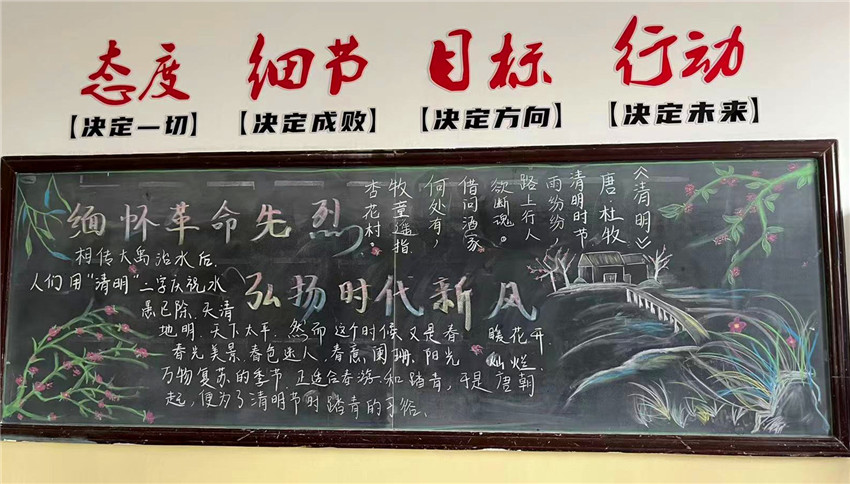 态度 细节 目标 行动
【决定一切】 【决定成败】 【决定方向】 【决定未来】
《清明》
唐.杜牧
清明时节
雨纷纷，
路上行人
欲断魂。
借问酒家
何处有，
牧童遥指
杏花村。
缅怀革命先烈
弘扬时代新风
相传大禹治水后，
人们用“清明”二字庆祝水
愚已除、天清
地明、天下太平、然而这个时候又是春暖花开、
春光美景、春色迷人、春意阑珊、阳光灿烂、
万物复苏的季节、正适合春游和踏青，于是唐朝
起，便为了清明节时踏青的习俗、